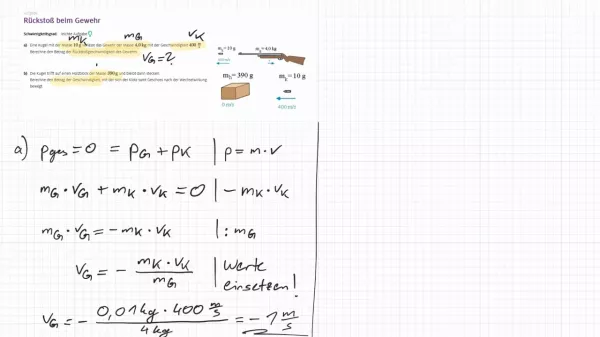 Rückstoß beim Gewehr
Schwierigkeitsgrad: leichte Aufgabe
m_K m_G v_K
a) Eine Kugel mit der Masse 10 g verlässt das Gewehr der Masse 4,0 kg mit der Geschwindigkeit 400 m/s.
Berechne den Betrag der Rückstoßgeschwindigkeit des Gewehrs.
v_G = ?
b) Die Kugel trifft auf einen Holzklotz der Masse 390 g und bleibt darin stecken.
Berechne den Betrag der Geschwindigkeit, mit der sich der Klotz samt Geschoss nach der Wechselwirkung
bewegt.
= 10 g = 4,0 kg
= 390 g = 10 g
0 m/s
400 m/s
a) p_ges = 0 = p_G + p_K | p = m · v
m_G · v_G + m_K · v_K = 0 | - m_K · v_K
m_G · v_G = - m_K · v_K | : m_G
v_G = - m_K · v_K / m_G | Werte
einsetzen!
v_G = - 0,01 kg · 400 m/s / 4 kg = - 1 m/s